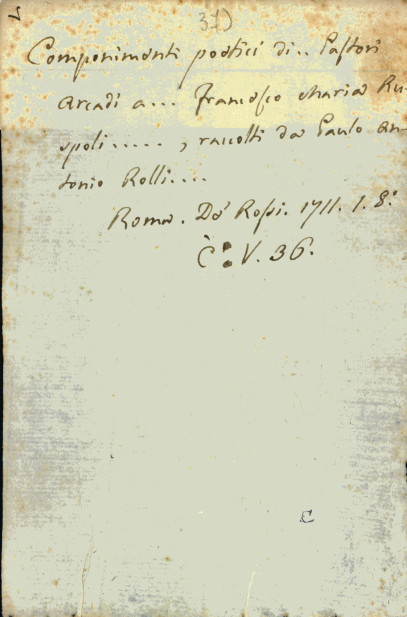 37)
Componimenti poetici di.. Pastori
Arcadi a... Francesco Maria Ru-
spoli....., raccolti da Paulo An-
tonio Rolli....
Roma. De' Rossi. 1711. 1. 8.°
C: V. 36.
C